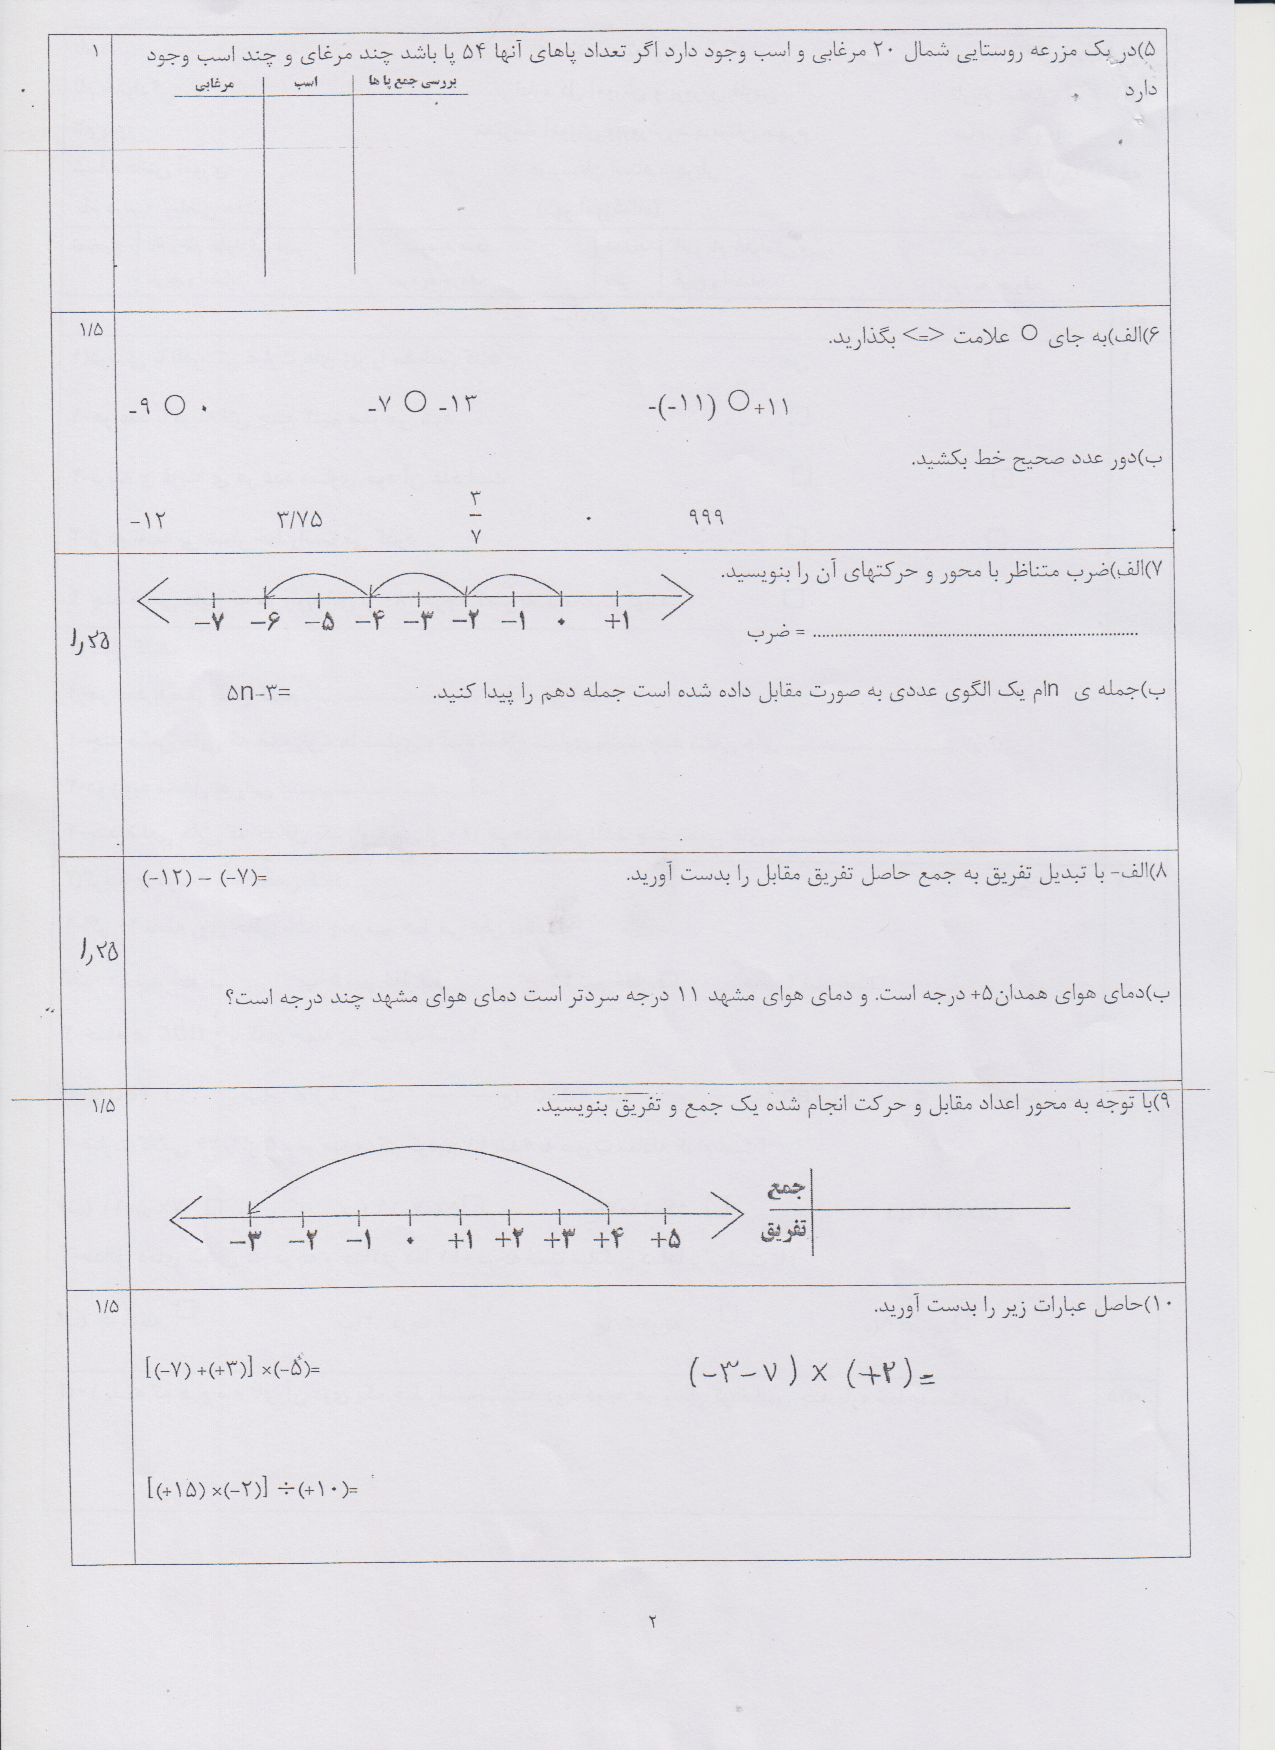 ۵)در یک مزرعه روستایی شمال ۲۰ مرغابی و اسب وجود دارد اگر تعداد پاهای آنها ۵۴ پا باشد چند مرغای و چند اسب وجود
۱
دارد
مرغابی | اسب | بررسی جمع پا ها
۶)الف)به جای ○ علامت <=> بگذارید.
۱/۵
-۹ ○ ۰    -۷ ○ -۱۳    -(-۱۱) ○ +۱۱
ب)دور عدد صحیح خط بکشید.
-۱۲    ۳/۷۵    ۳/۷    ۰    ۹۹۹
۷)الف)ضرب متناظر با محور و حرکتهای آن را بنویسید.
-۷ -۶ -۵ -۴ -۳ -۲ -۱ ۰ +۱
........................................ = ضرب
۱٫۲۵
ب)جمله ی nام یک الگوی عددی به صورت مقابل داده شده است جمله دهم را پیدا کنید.
۵n-۳=
۸)الف- با تبدیل تفریق به جمع حاصل تفریق مقابل را بدست آورید.
(-۱۲) - (-۷)=
۱٫۲۵
ب)دمای هوای همدان۵+ درجه است. و دمای هوای مشهد ۱۱ درجه سردتر است دمای هوای مشهد چند درجه است؟
۹)با توجه به محور اعداد مقابل و حرکت انجام شده یک جمع و تفریق بنویسید.
۱/۵
جمع
تفریق
-۳ -۲ -۱ ۰ +۱ +۲ +۳ +۴ +۵
۱۰)حاصل عبارات زیر را بدست آورید.
۱/۵
[(-۷)+(+۳)]×(-۵)=    (-۳-۷) × (+۲) =
[(+۱۵)×(-۲)]÷(+۱۰)=
۲